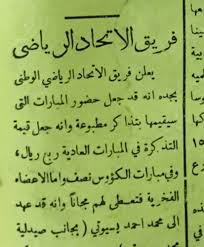 فريق الاتحاد الرياضى
يعلن فريق الاتحاد الرياضى الوطنى
بجده انه قد جعل حضور المباريات التى
سيقيمها بتذاكر مطبوعة وانه جعل قيمة
التذكرة فى المباريات العادية ربع ريال،
وفى مباريات الكؤوس نصف واما الاعضاء
الفخرية فتعطى لهم مجاناً وانه قد عهد
الى محمد احمد بسيونى (بجانب صيدلية